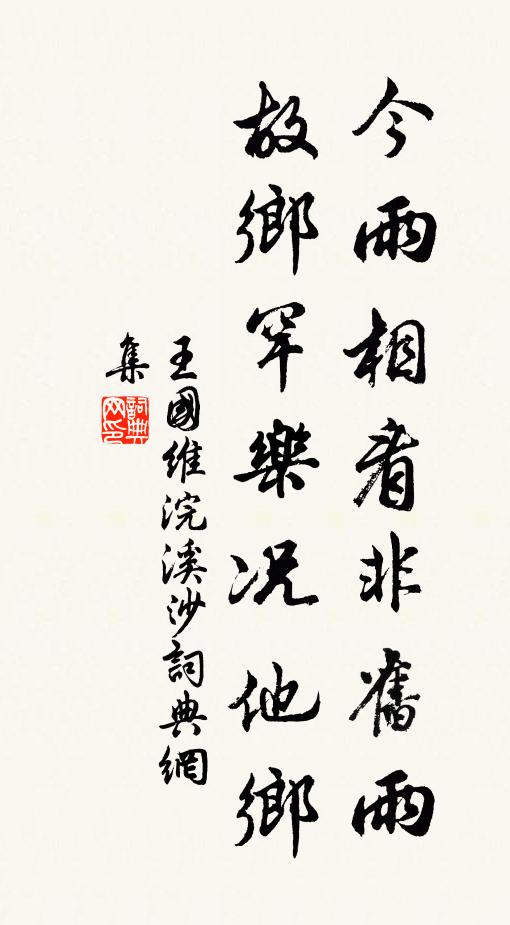 今雨相看非舊雨
故鄉罕樂况他鄉
王國維浣溪沙詞典網
集
詞典
网印